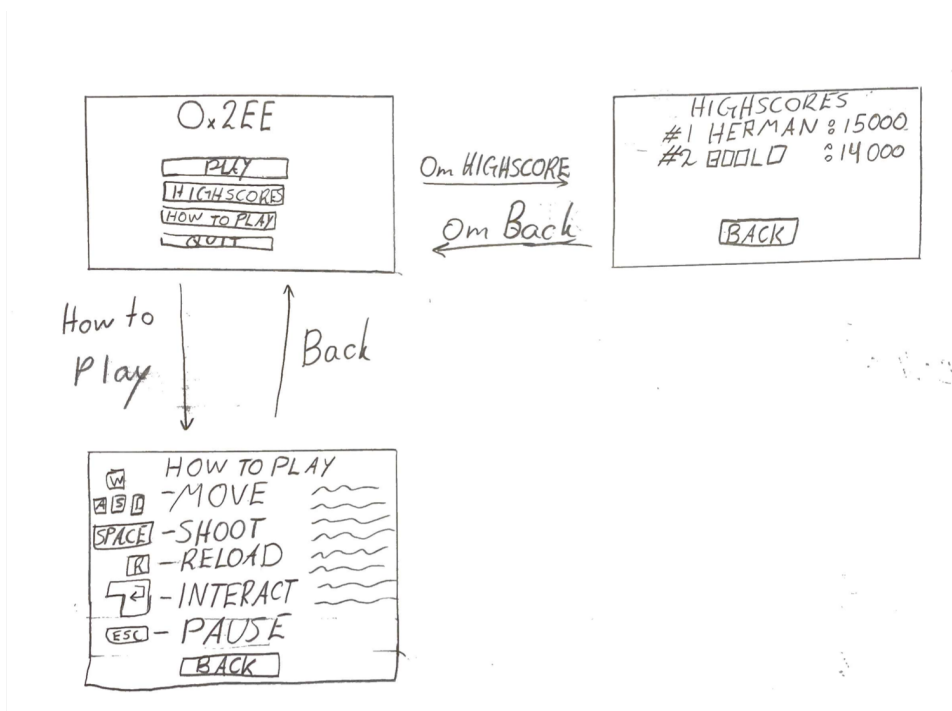 0x2EE
PLAY
HIGHSCORES
HOW TO PLAY
QUIT
Om HIGHSCORE
Om Back
HIGHSCORES
#1 HERMAN : 15000
#2 : 14000
BACK
How to
Play
Back
HOW TO PLAY
W
A S D
- MOVE
SPACE - SHOOT
R - RELOAD
- INTERACT
ESC - PAUSE
BACK